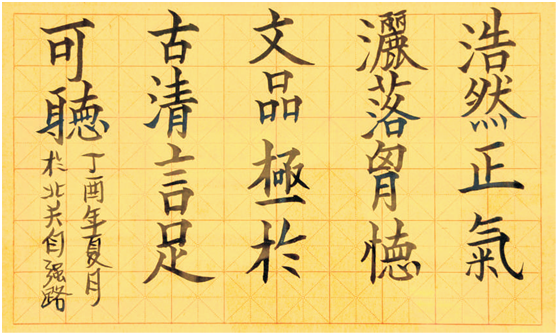 浩然正氣
灑落胷
文品極於
古清言足
可聽
丁酉年夏月
於北关自强路